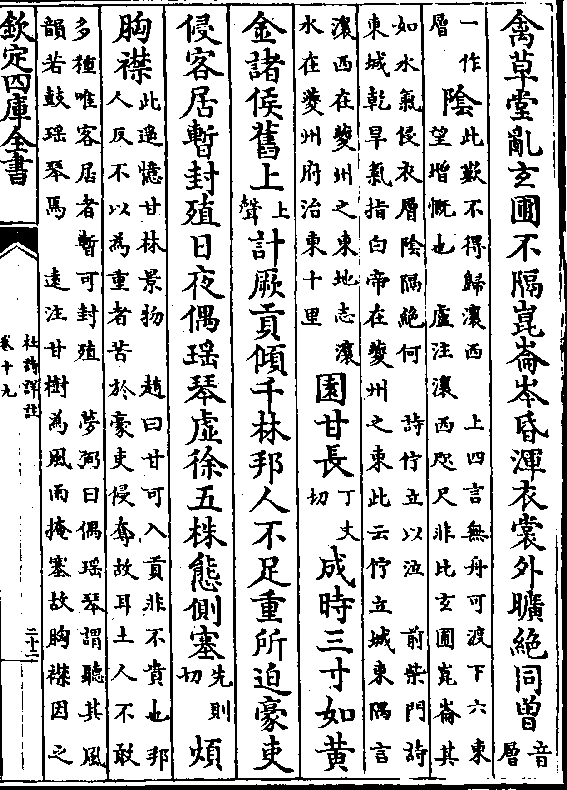 禽草堂亂玄圃不隔崑崙岑昏渾衣裳外曠絶同曽音層
一作層陰此歎不得歸瀼西 上四言無舟可渡下六東
望增慨也 盧注瀼西咫尺非比玄圃崑崙其
如水氣侵衣層陰隔絶何 詩佇立以泣 前柴門詩
東城乾旱氣指白帝在夔州之東此云佇立城東隅言
瀼西在夔州之東地志瀼
水在夔州府治東十里
園甘長丁丈切成時三寸如黄
金諸侯舊上上聲計厥貢傾千林邦人不足重所迫豪吏
侵客居暫封殖日夜偶瑶琴虚徐五株態側塞先則切煩
胸襟此追憶甘林景物 趙曰甘可入貢非不貴也邦
人反不以為重者苦於豪吏侵奪故耳土人不敢
多種唯客居者暫可封殖 夢弼曰偶瑶琴謂聽其風
韻若鼓瑶琴焉 遠注甘樹為風雨掩塞故胸襟因之
欽定四庫全書
杜詩詳註
卷十九
二十二